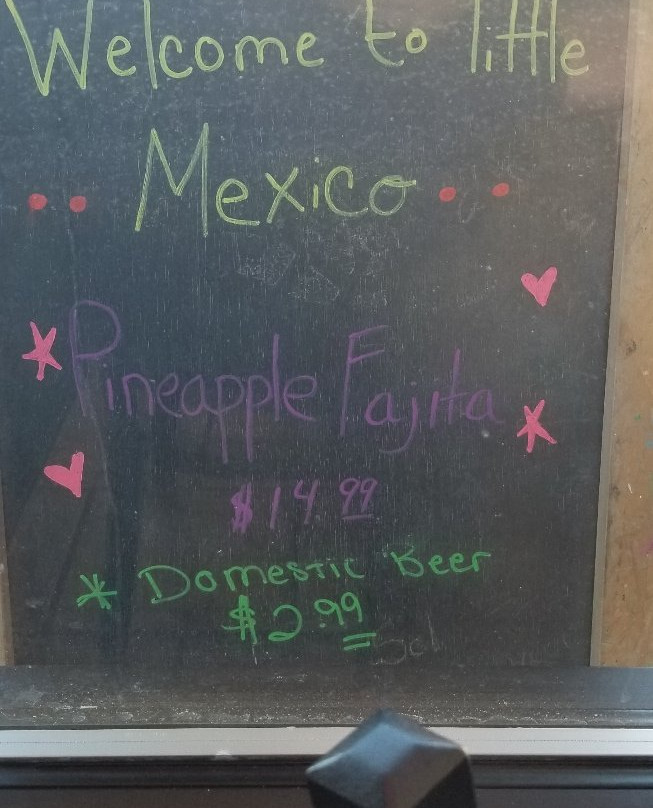 Welcome to little
Mexico
Pineapple Fajita
$14.99
* Domestic Beer
$2.99